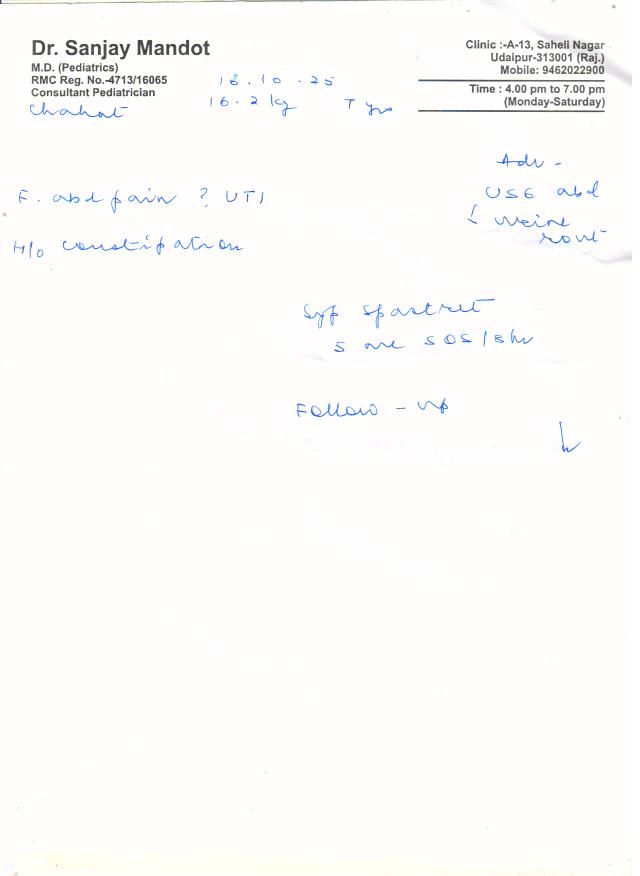 Dr. Sanjay Mandot
M.D. (Pediatrics)
RMC Reg. No.-4713/16065
Consultant Pediatrician
Clinic :-A-13, Saheli Nagar
Udaipur-313001 (Raj.)
Mobile: 9462022900
Time : 4.00 pm to 7.00 pm
(Monday-Saturday)
Chahat
16.10.25
16.2 kg 7 yrs
F. abd pain ? UTI
H/o constipation
Adv -
USG abd
urine
rout
Syp
5 ml SOS / 8 hr
Follow - up